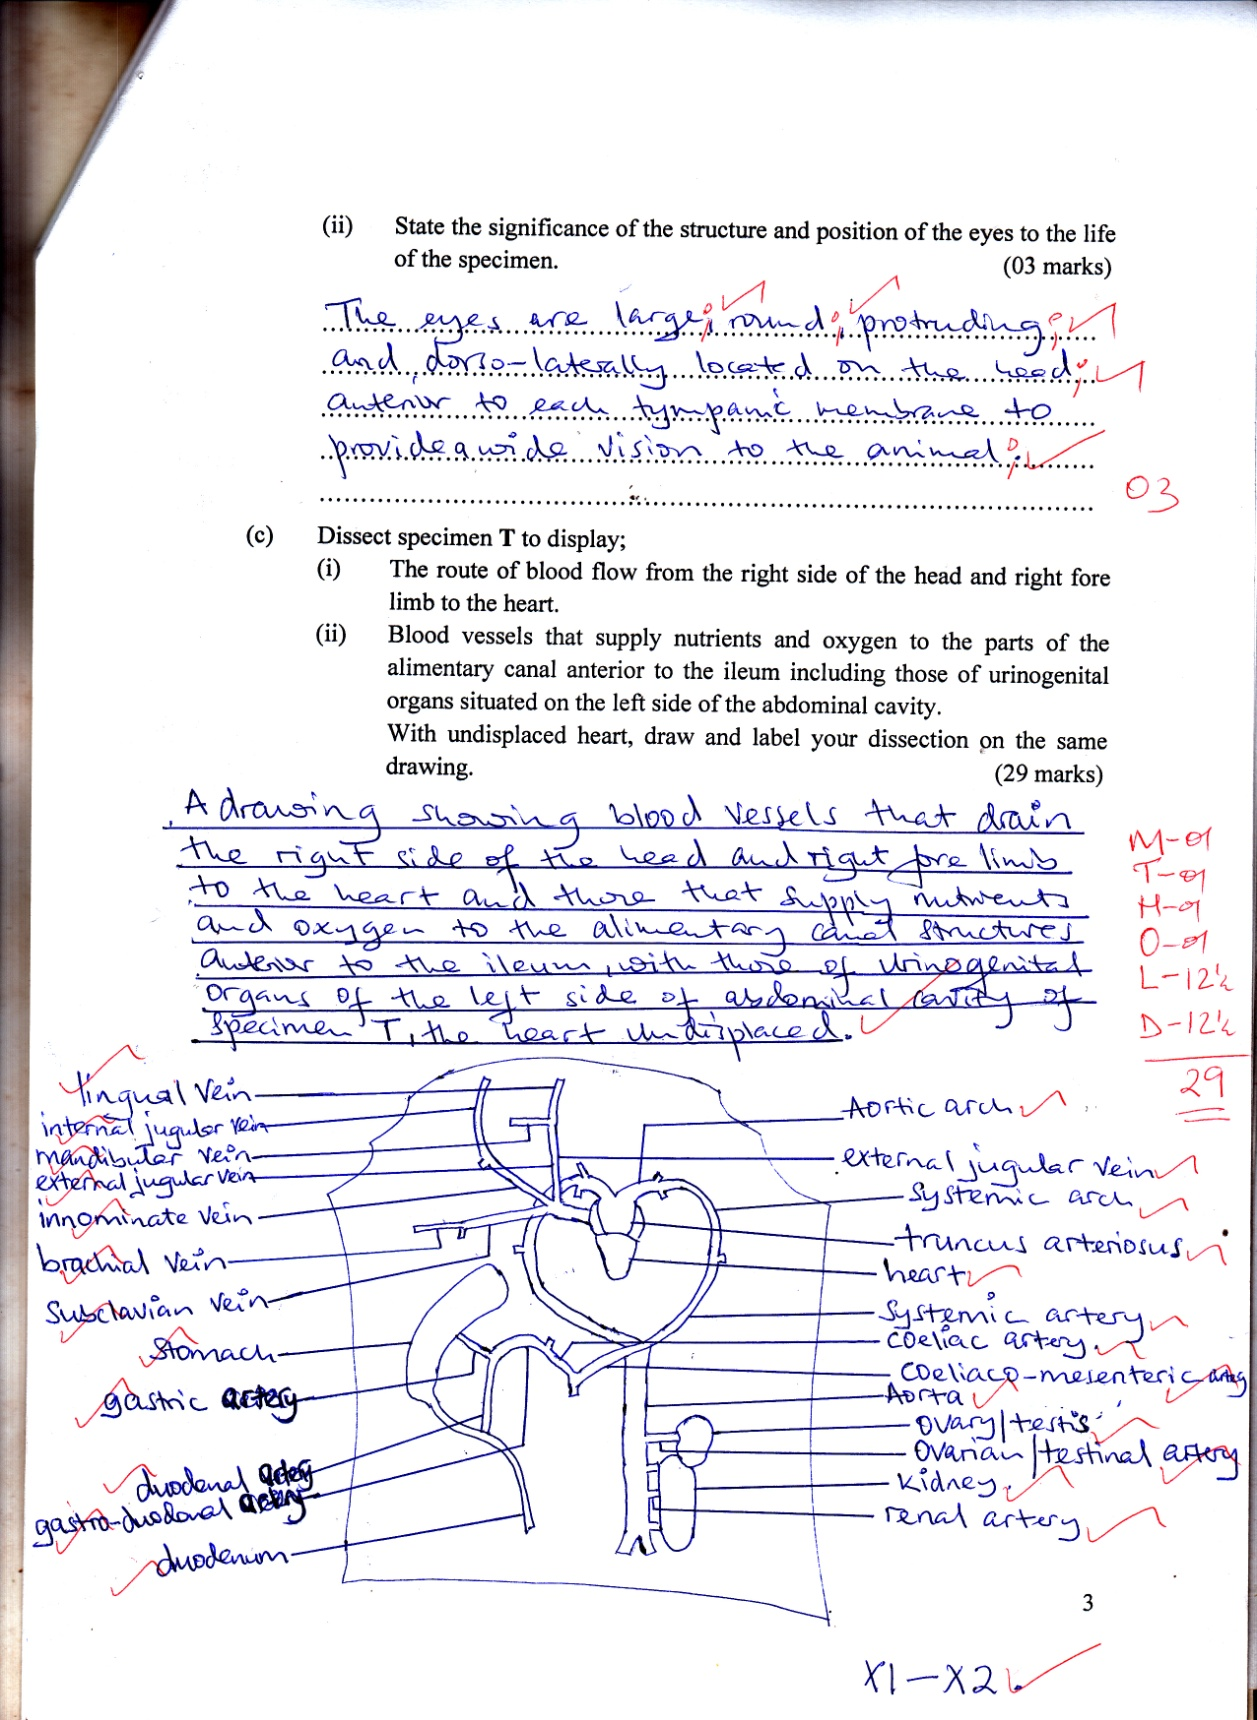 (ii) State the significance of the structure and position of the eyes to the life
of the specimen. (03 marks)
The eyes are large; round; protruding;
and dorso-laterally located on the head;
anterior to each tympanic membrane to
provide a wide vision to the animal;
03
(c) Dissect specimen T to display;
(i) The route of blood flow from the right side of the head and right fore
limb to the heart.
(ii) Blood vessels that supply nutrients and oxygen to the parts of the
alimentary canal anterior to the ileum including those of urinogenital
organs situated on the left side of the abdominal cavity.
With undisplaced heart, draw and label your dissection on the same
drawing. (29 marks)
A drawing showing blood vessels that drain
the right side of the head and right fore limb
to the heart and those that supply nutrients
and oxygen to the alimentary canal structures
anterior to the ileum, with those of Urinogenital
organs of the left side of abdominal cavity of
specimen T, the heart undisplaced.
M-01
T-01
H-01
O-01
L-12½
D-12½
29
lingual vein
internal jugular vein
mandibular vein
external jugular vein
innominate vein
brachial vein
Subclavian vein
Stomach
gastric artery
duodenal artery
gastro-duodenal artery
duodenum
Aortic arch
external jugular vein
Systemic arch
truncus arteriosus
heart
Systemic artery
coeliac artery
coeliaco-mesenteric artery
Aorta
Ovary/testis
Ovarian/testinal artery
Kidney
renal artery
3
X1-X2